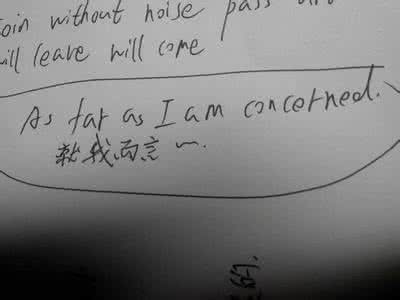 without noise pass
will leave will come
As far as I am concerned.
就我而言~.
的.